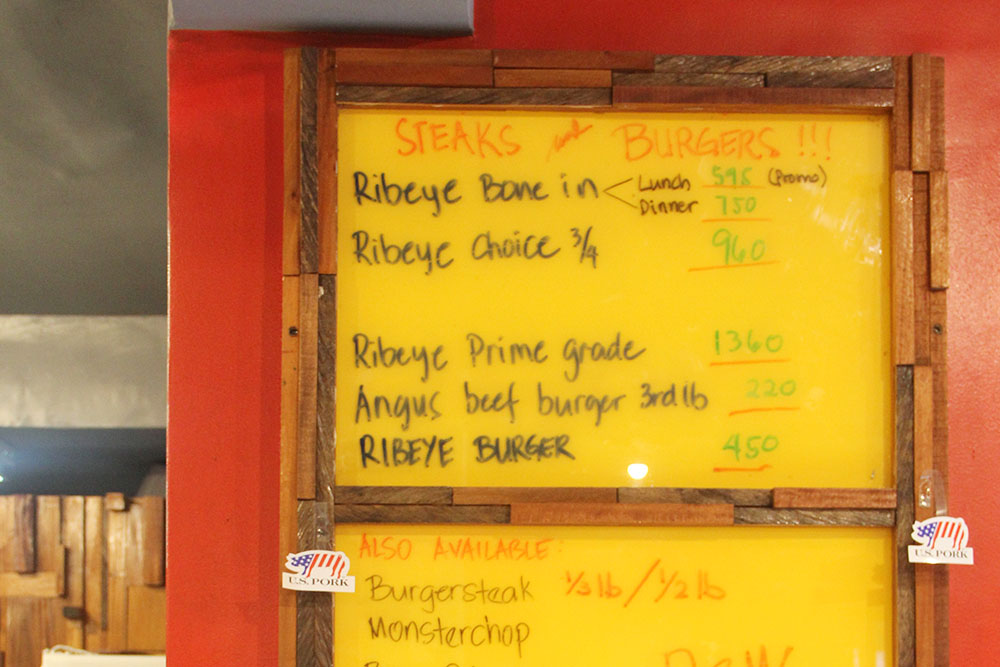 STEAKS and BURGERS !!!
Ribeye Bone in < Lunch 595 (Promo)
Dinner 750
Ribeye Choice 3/4 960
Ribeye Prime grade 1360
Angus beef burger 3rd lb 220
RIBEYE BURGER 450
ALSO AVAILABLE:
Burgersteak 1/3 lb / 1/2 lb
Monsterchop
U.S. PORK
U.S. PORK